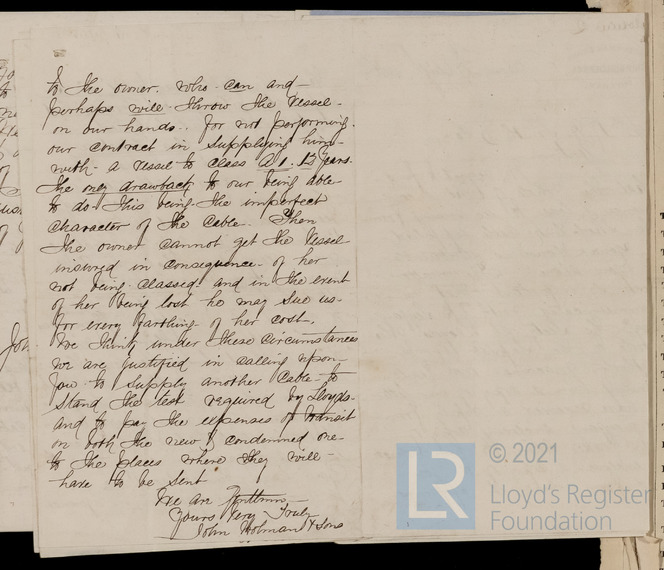 to the owner. who can and
perhaps will throw the Vessel
on our hands. for not performing
our contract in supplying him
with a vessel to class A1. 13 years.
The only drawback to our being able
to do this being the imperfect
character of the Cable. Then
the owner cannot get the Vessel
insured in consequence of her
not being classed and in the event
of her being lost he may sue us
for every farthing of her cost.
We think under these circumstances
we are justified in calling upon
you to supply another Cable to
stand the test required by Lloyds
and to pay the expenses of transit
on both the new & condemned one
to the places where they will
have to be sent
We are Gentlemen
Yours very Truly
John Holman & Sons
LR
© 2021
Lloyd's Register
Foundation